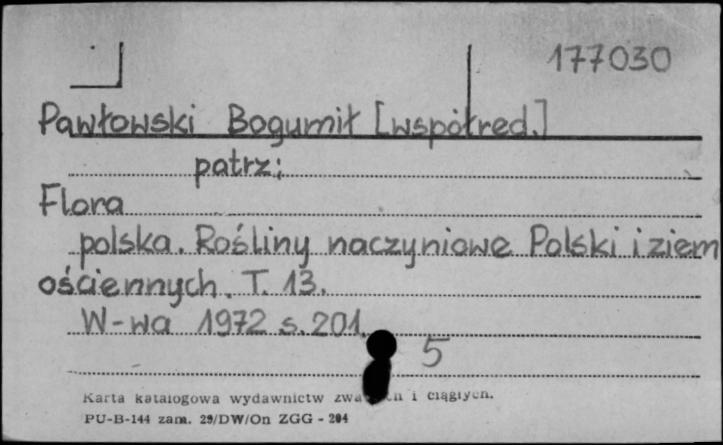 177030
Pawłowski Bogumił [współred.]
patrz:
Flora
polska. Rośliny naczyniowe Polski i ziem
ościennych. T. 13.
W-wa 1972 s. 201.
5
Karta katalogowa wydawnictw i ciągłych.
PU-B-144 zam. 29/DW/On ZGG - 204